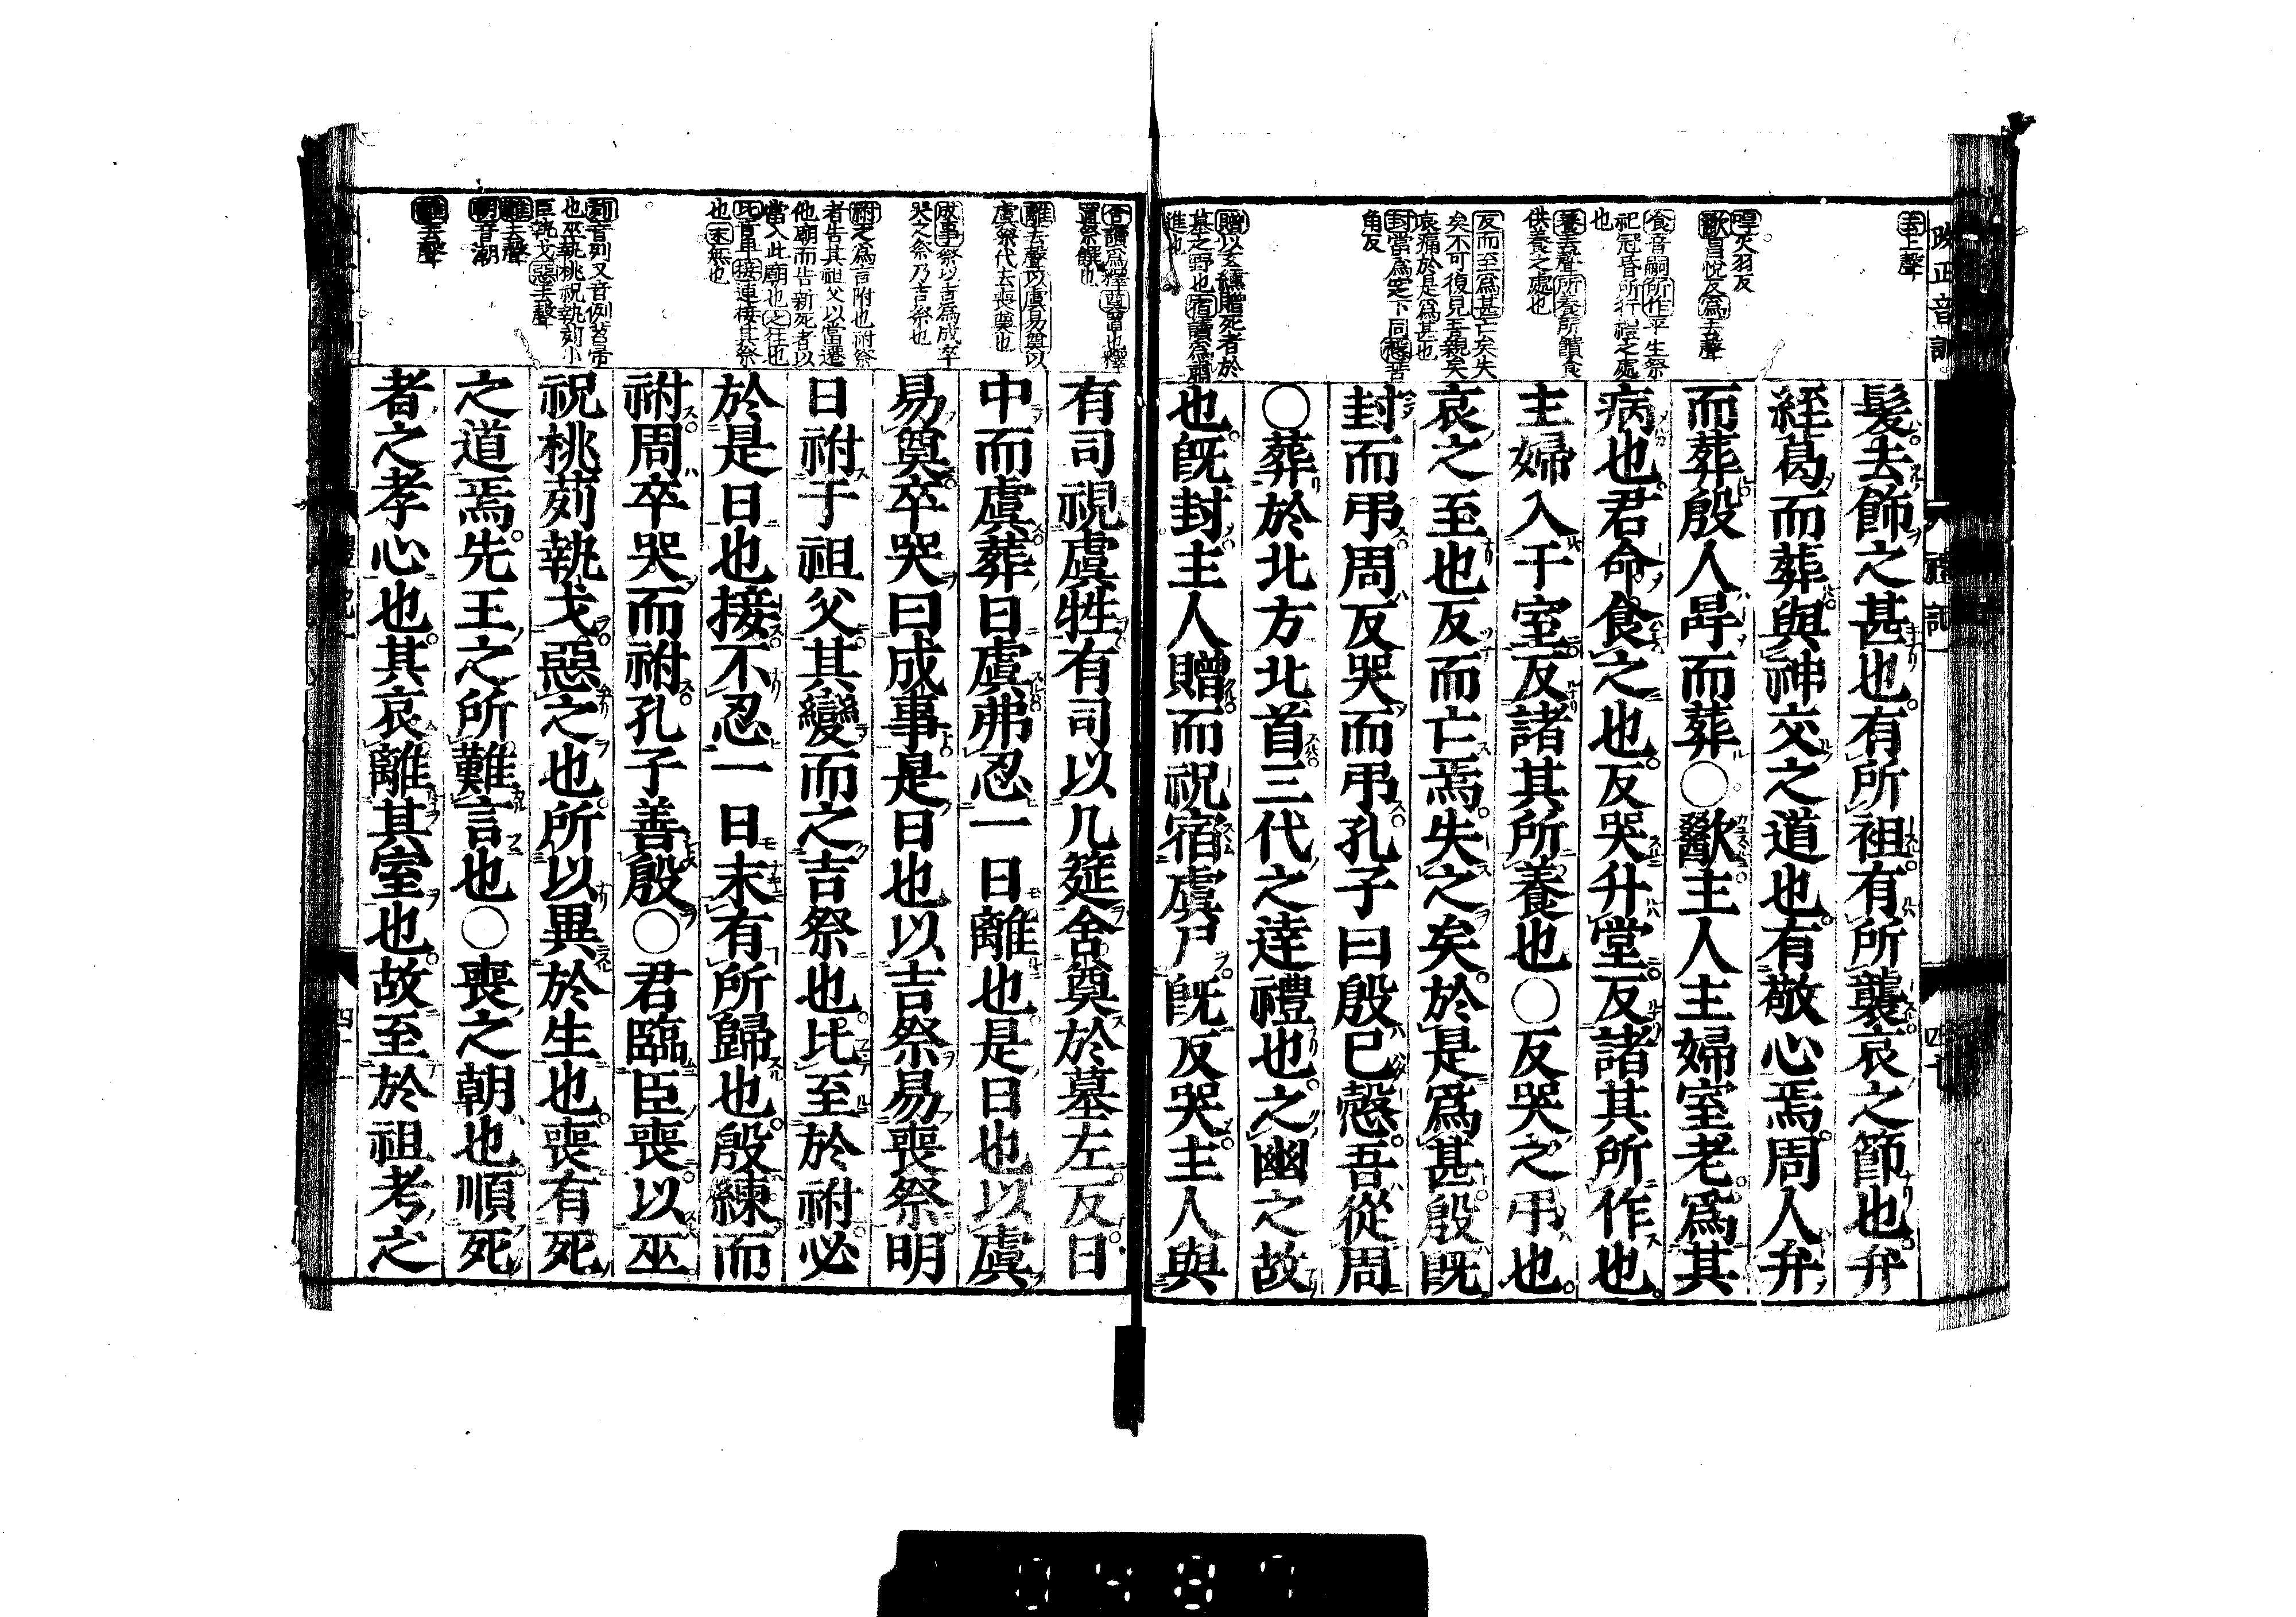 改正音訓
禮記一
去上聲
冔火羽反
歠昌悅反爲去聲
食音嗣所作平生祭
祀冠昏所行禮之處
也
養去聲所養所饋食
供養之處也
反而至爲甚亡矣失
矣不可復見吾親矣
哀痛於是爲甚也
封當爲窆下同慤苦
角反
贈以玄纁贈死者於
墓之野也宿讀爲肅
進也
髮去飾之甚也有所袒有所襲哀之節也弁
絰葛而葬與神交之道也有敬心焉周人弁
而葬殷人冔而葬○歠主人主婦室老爲其
病也君命食之也反哭升堂反諸其所作也
主婦入于室反諸其所養也○反哭之弔也
哀之至也反而亡焉失之矣於是爲甚殷既
封而弔周反哭而弔孔子曰殷已慤吾從周
○葬於北方北首三代之達禮也之幽之故
也既封主人贈而祝宿虞尸既反哭主人與
舍讀爲釋奠置也釋
置祭饌也
離去聲以虞易奠以
虞祭代去喪奠也
成事祭以吉爲成卒
哭之祭乃吉祭也
祔之爲言附也祔祭
者告其祖父以當遷
他廟而告新死者以
當入此廟也之往也
比音卑接連接其祭
也末無也
茢音列又音例苕帚
也巫執桃祝執茢小
臣執戈惡去聲
難去聲
朝音潮
離去聲
有司視虞牲有司以几筵舍奠於墓左反日
中而虞葬日虞弗忍一日離也是日也以虞
易奠卒哭曰成事是日也以吉祭易喪祭明
日祔于祖父其變而之吉祭也比至於祔必
於是日也接不忍一日末有所歸也殷練而
祔周卒哭而祔孔子善殷○君臨臣喪以巫
祝桃茢執戈惡之也所以異於生也喪有死
之道焉先王之所難言也○喪之朝也順死
者之孝心也其哀離其室也故至於祖考之